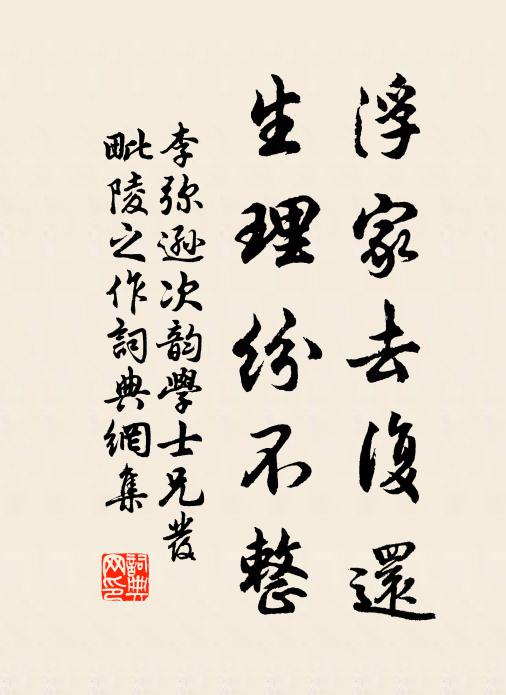 浮家去復還
生理紛不整
李弥遜次韵學士兄發
毗陵之作詞典網集
詞典
网印